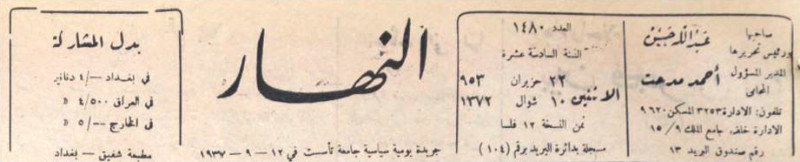 صاحبها
ورئيس تحريرها
عبد الله حسن
المدير المسؤول
المحامي
أحمد مدحت
تلفون: الادارة ٣٢٥٣ المسكن ٩٦٢٠
الادارة خلف جامع الملك ٩/ ١٥
رقم صندوق البريد ١٣
العدد ١٤٨٠
السنة السادسة عشرة
الاثنين
٢٢ حزيران ٩٥٣
١٠ شوال ١٣٧٢
ثمن النسخة ١٢ فلسا
مسجلة بدائرة البريد برقم (١٠٤)
النهار
جريدة يومية سياسية جامعة تأسست في ١٢ - ٩ - ١٩٣٧
بدل المشاركة
في بغداد -/٤ دنانير
في العراق ٤/٥٠٠ »
في الخارج -/٥ »
مطبعة شفيق - بغداد